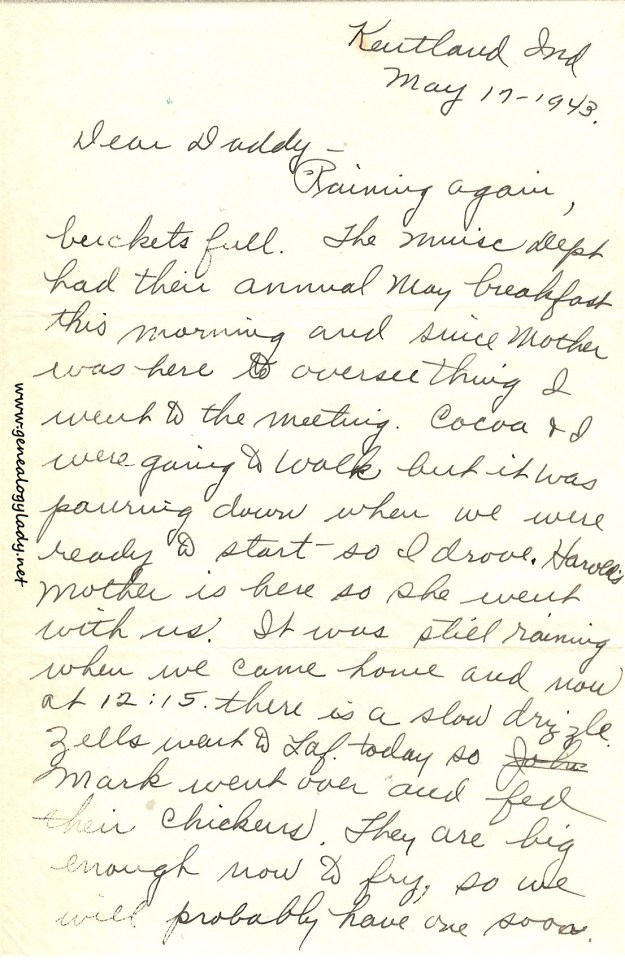 Kentland Ind
May 17-1943.
Dear Daddy –
Raining again,
buckets full. The Music Dept
had their annual May breakfast
this morning and since Mother
was here to oversee thing I
went to the meeting. Cocoa & I
were going to walk but it was
pouring down when we were
ready to start so I drove. Harold's
Mother is here so she went
with us. It was still raining
when we came home and now
at 12:15. there is a slow drizzle.
Zells went to Laf. today so John
Mark went over and fed
their chickens. They are big
enough now to fry, so we
will probably have one soon.
www.genealogylady.net